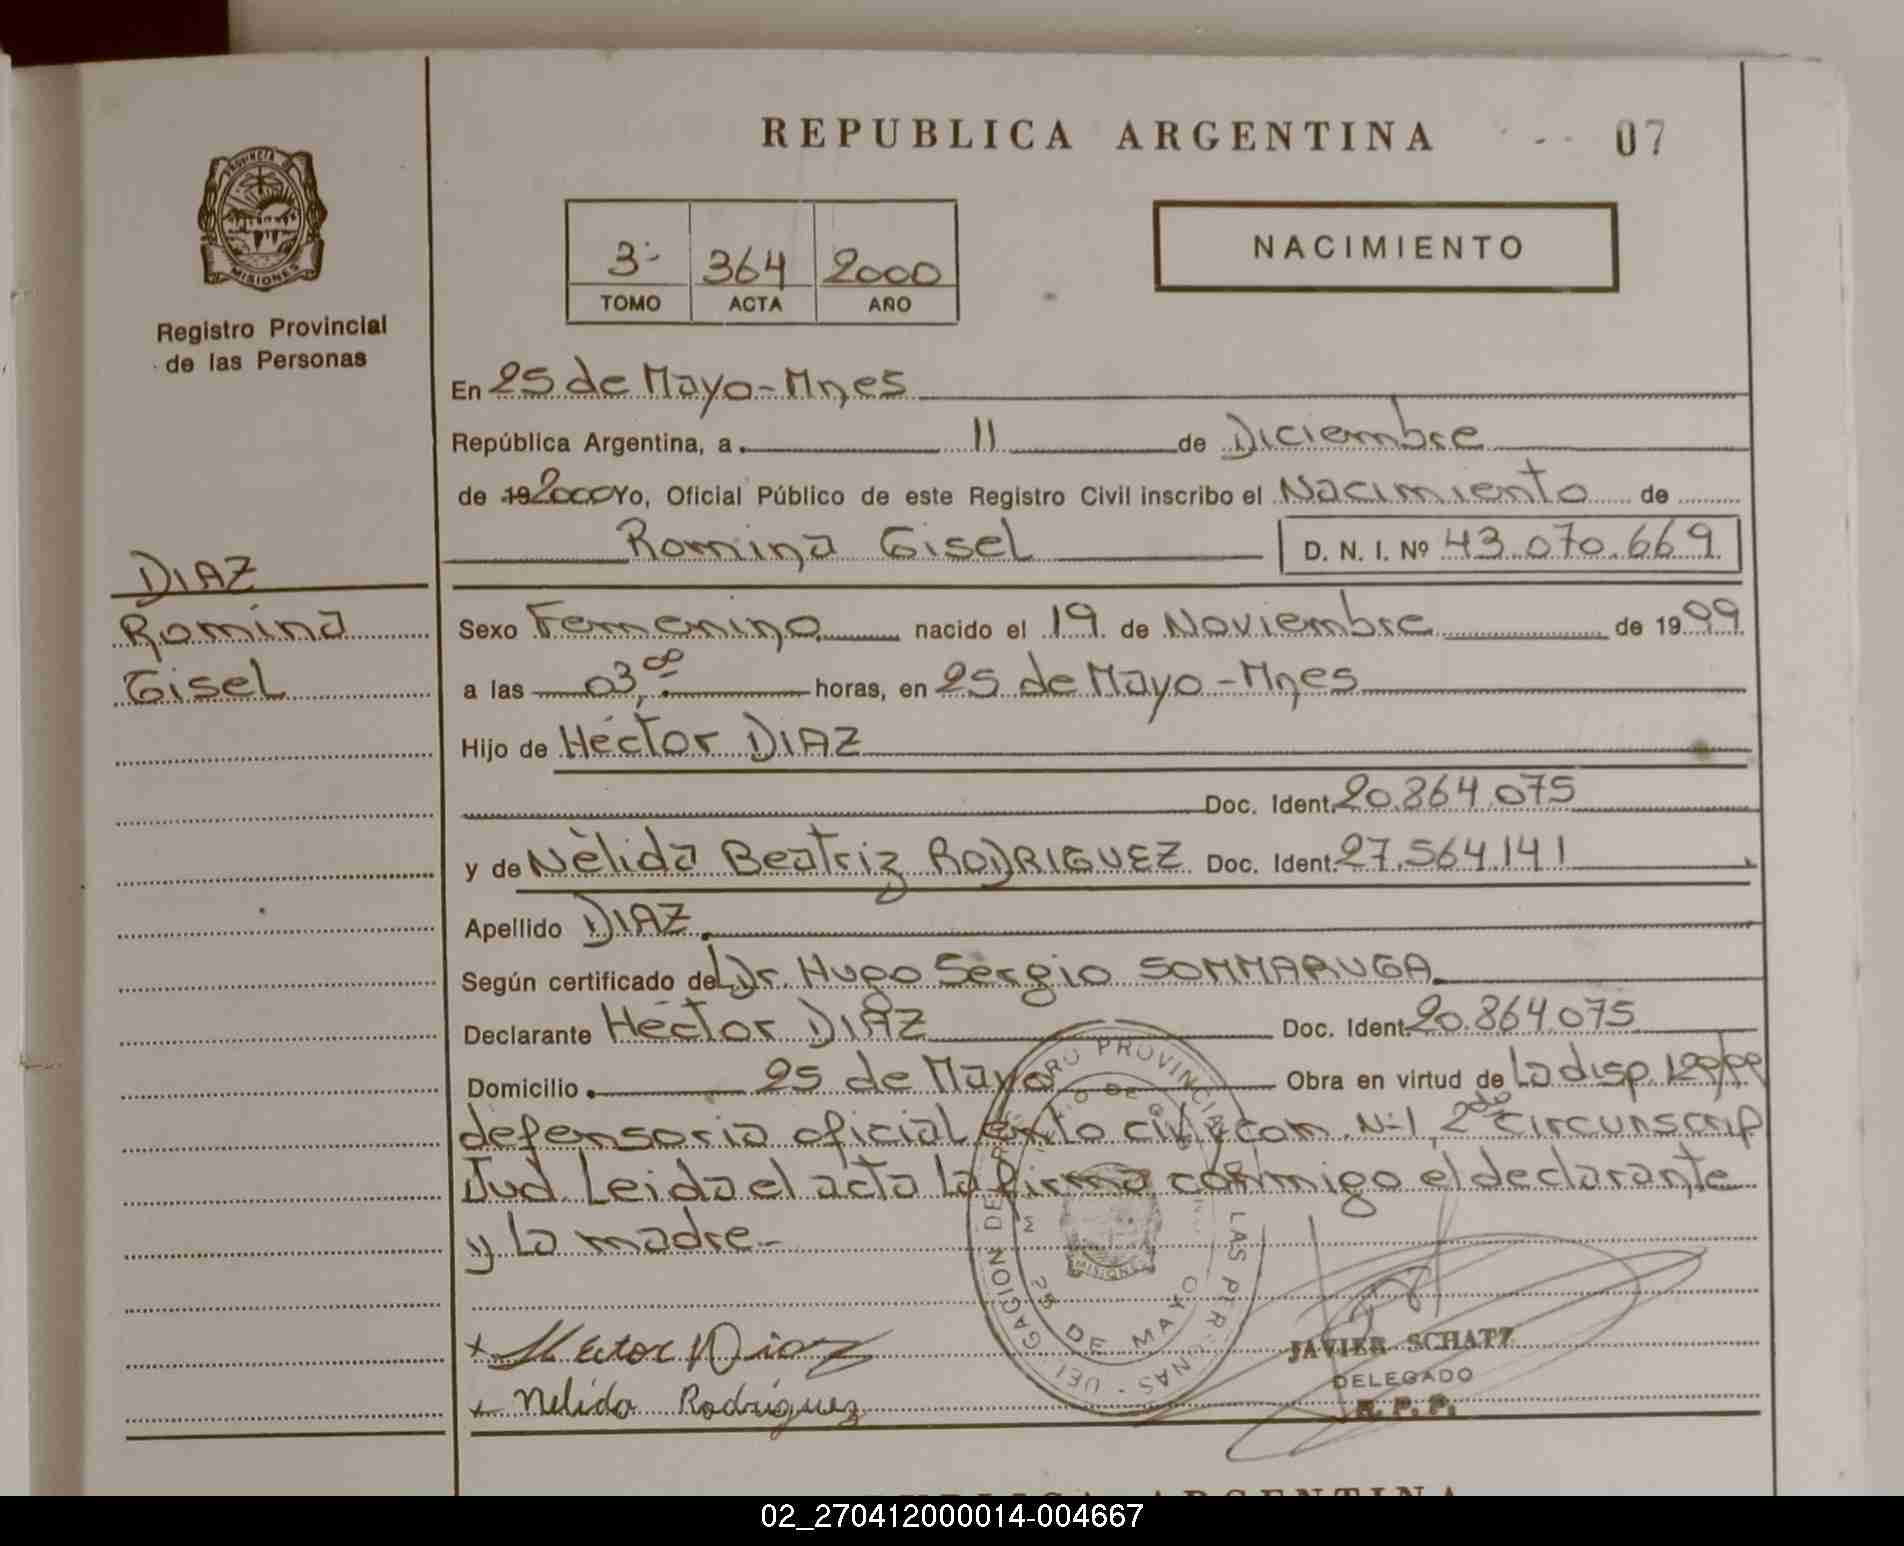 REPUBLICA ARGENTINA 07
PROVINCIA DE MISIONES
Registro Provincial
de las Personas
3- 364 2000
TOMO ACTA AÑO
NACIMIENTO
En 25 de Mayo-Mnes
República Argentina, a 11 de Diciembre
de 19 2000 Yo, Oficial Público de este Registro Civil inscribo el Nacimiento de
Romina Gisel D. N. I. Nº 43.070.669
DIAZ
Romina
Gisel
Sexo Femenino nacido el 19 de Noviembre de 1999
a las 03,00 horas, en 25 de Mayo-Mnes
Hijo de Héctor DIAZ
Doc. Ident. 20.864.075
y de Nèlida Beatriz RODRIGUEZ Doc. Ident. 27.564.141
Apellido DIAZ
Según certificado del Dr. Hugo Sergio SOMMARUGA
Declarante Héctor DIAZ Doc. Ident. 20.864.075
Domicilio 25 de Mayo Obra en virtud de la disp.
defensoria oficial en lo civ y com. Nº1, 2da circunscrip
Jud. Leida el acta la firma conmigo el declarante
y la madre-
+ Hector Diaz
+ Nelida Rodriguez
25 DE MAYO
MISIONES
JAVIER SCHATZ
DELEGADO
R. P. P.
REPUBLICA ARGENTINA
02_270412000014-004667